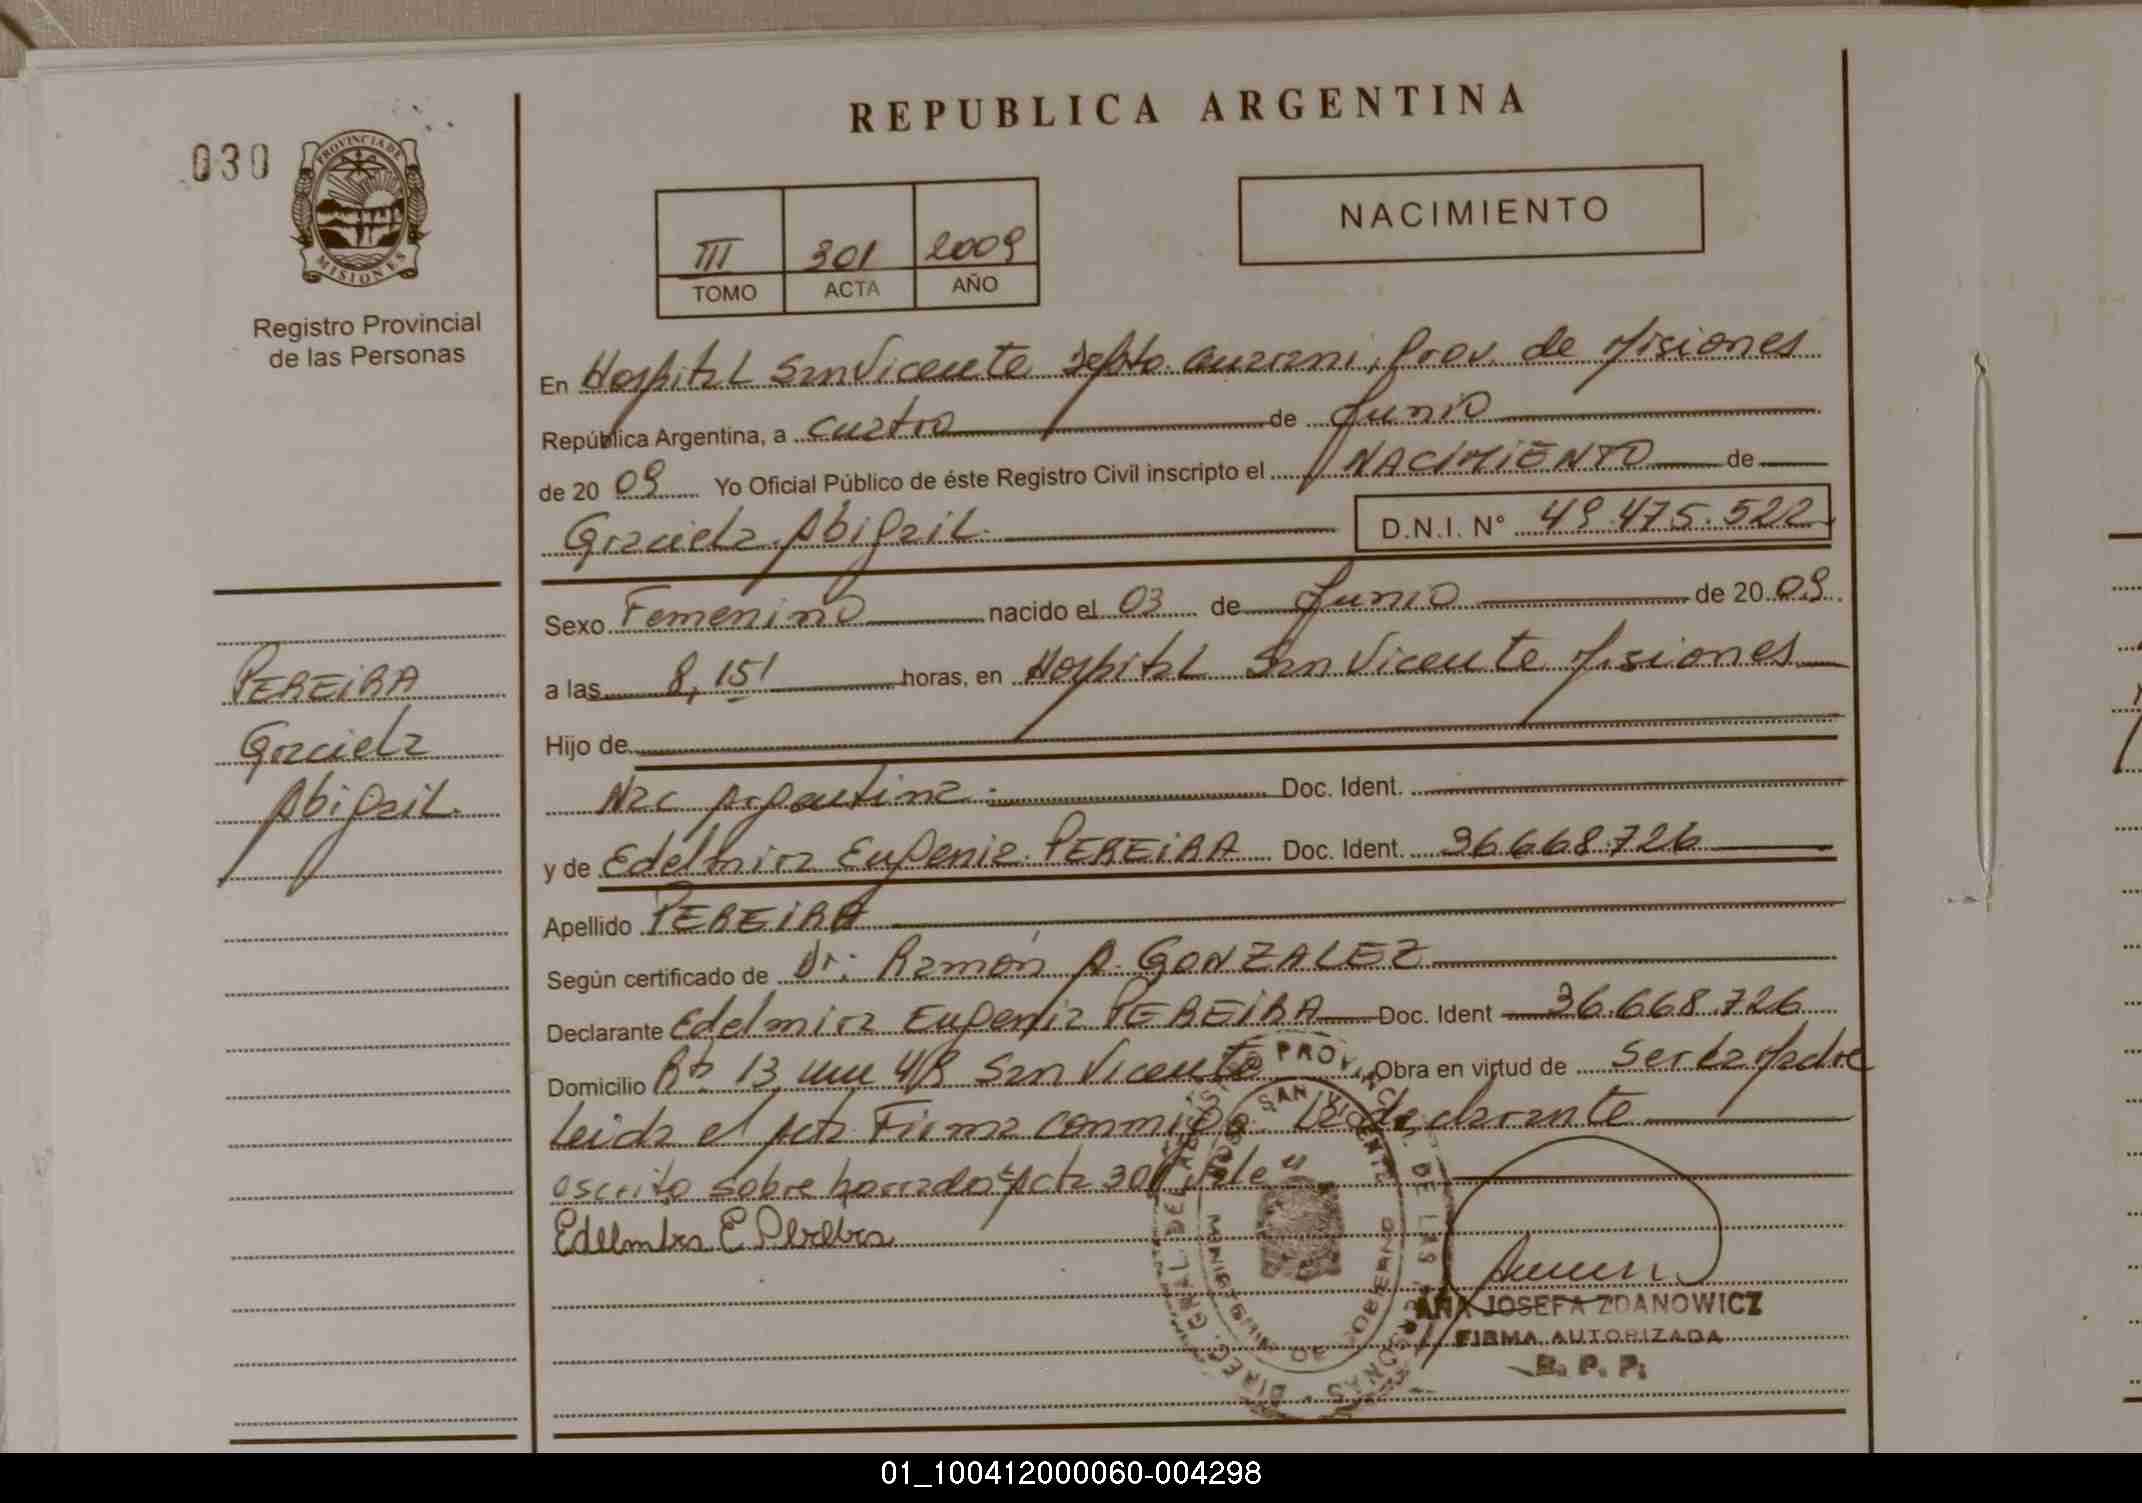 REPUBLICA ARGENTINA
030
PROVINCIA DE
MISIONES
Registro Provincial
de las Personas
III 301 2009
TOMO ACTA AÑO
NACIMIENTO
En Hospital San Vicente Depto. Guarani, Prov. de Misiones
República Argentina, a cuatro de Junio
de 2009 Yo Oficial Público de éste Registro Civil inscripto el NACIMIENTO de
Graciela Abigail D.N.I. N° 49.475.522
Sexo Femenino nacido el 03 de Junio de 2009
a las 8,15' horas, en Hospital San Vicente Misiones
Hijo de
Nac Argentina. Doc. Ident.
y de Edelmira Eugenia PEREIRA Doc. Ident. 36.668.726
Apellido PEREIRA
Según certificado de Dr: Ramón A. GONZALEZ
Declarante Edelmira Eugenia PEREIRA Doc. Ident 36.668.726
Domicilio Rta 13 San Vicente Obra en virtud de ser la Madre
leida el Acta Firma conmigo La declarante
escrito sobre borrado "Acta 301 Vale"
PEREIRA
Graciela
Abigail.
DIREC. GRAL. DEL PROVINCIAL DE LAS PERSONAS
SAN VICENTE
MINISTERIO DE GOBIERNO
ANA JOSEFA ZDANOWICZ
FIRMA AUTORIZADA
R. P. P.
01_100412000060-004298